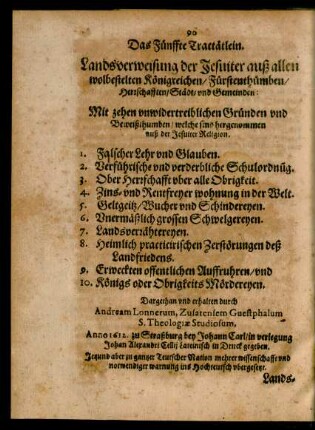 90
Das Fünffte Tractätlein.
Landsverweisung der Jesuiter auß allen
wolbestelten Königreichen/ Fürstenthümben/
Herrschafften/ Städt/ vnd Gemeinden:
Mit zehen vnwidertreiblichen Gründen vnd
Beweißthumben/ welche sind hergenommen
auß der Jesuiter Religion.
1. Falscher Lehr vnd Glauben.
2. Verführische vnd verderbliche Schulordnūg.
3. Ober Herrschafft vber alle Obrigkeit.
4. Zins- vnd Rentfreyer wohnung in der Welt.
5. Geltgeitz/ Wucher vnd Schindereyen.
6. Vnermäßlich grossen Schwelgereyen.
7. Landsverräthereyen.
8. Heimlich practicirischen Zerstörungen deß
Landfriedens.
9. Erweckten offentlichen Auffruhren/ vnd
10. Königs oder Obrigkeits Mördereyen.
Dargethan vnd erhalten durch
Andream Lonnerum, Zusatensem Guestphalum
S. Theologiæ Studiosum,
Anno 1612. zu Straßburg bey Johann Carl/ in verlegung
Johan Alexandri Cellij Lateinisch in Druck gegeben.
Jetzund aber zu gantzer Teutscher Nation mehrer wissenschafft vnd
notwendiger warnung ins Hochteutsch vbergesetzt.
Lands-